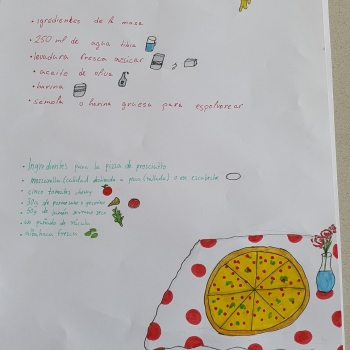 • igredientes de la masa
• 250 ml de agua tibia
• levadura fresca azúcar
• aceite de oliva
• harina
• semola o harina gruesa para espolvorear
• Ingredientes para la pizza de proscuito
• mozzarella
• cinco tomates cherry
• 30g de parmesano o pecorino
• 50g de jamón serrano seco
• un puñado de rúcula
• albahaca fresca